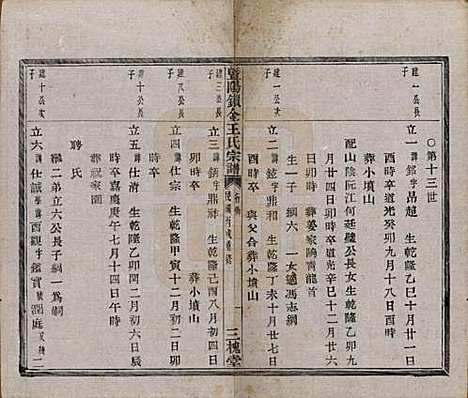 ○第十三世
建一公長子
立一 諱銘字品超 生乾隆 十月廿一日
酉時卒道光癸卯九月十八日酉時
葬小墳山
配山陰阮江何廷璧公長女生乾隆乙卯九
月廿四日 時卒道光 十二月廿六
日卯時 葬姜家隝青龍首
生一子 綱六 一女適馮志綱
建一公次子
立二 諱鉉字鼎和 生乾隆丁未十月廿七日
酉時卒 與父合葬小墳山
暨陽鎮金王氏宗譜
三槐堂
建三公長子
立三 諱 字鼎祥 生乾隆己酉八月初四日
卯時卒 葬小墳山
建八公長子
立四 諱仕宗 生乾隆甲寅十二月初二日卯
時卒
建十公長子
立五 諱仕濟 生乾隆乙卯二月初六日辰
時卒嘉慶庚午七月十四日午時
葬祝家園
聘氏
繼二弟立六公長子綱一爲嗣
建十公次子
立六 諱仕誠 字酉觀字鑑賓 潤庭